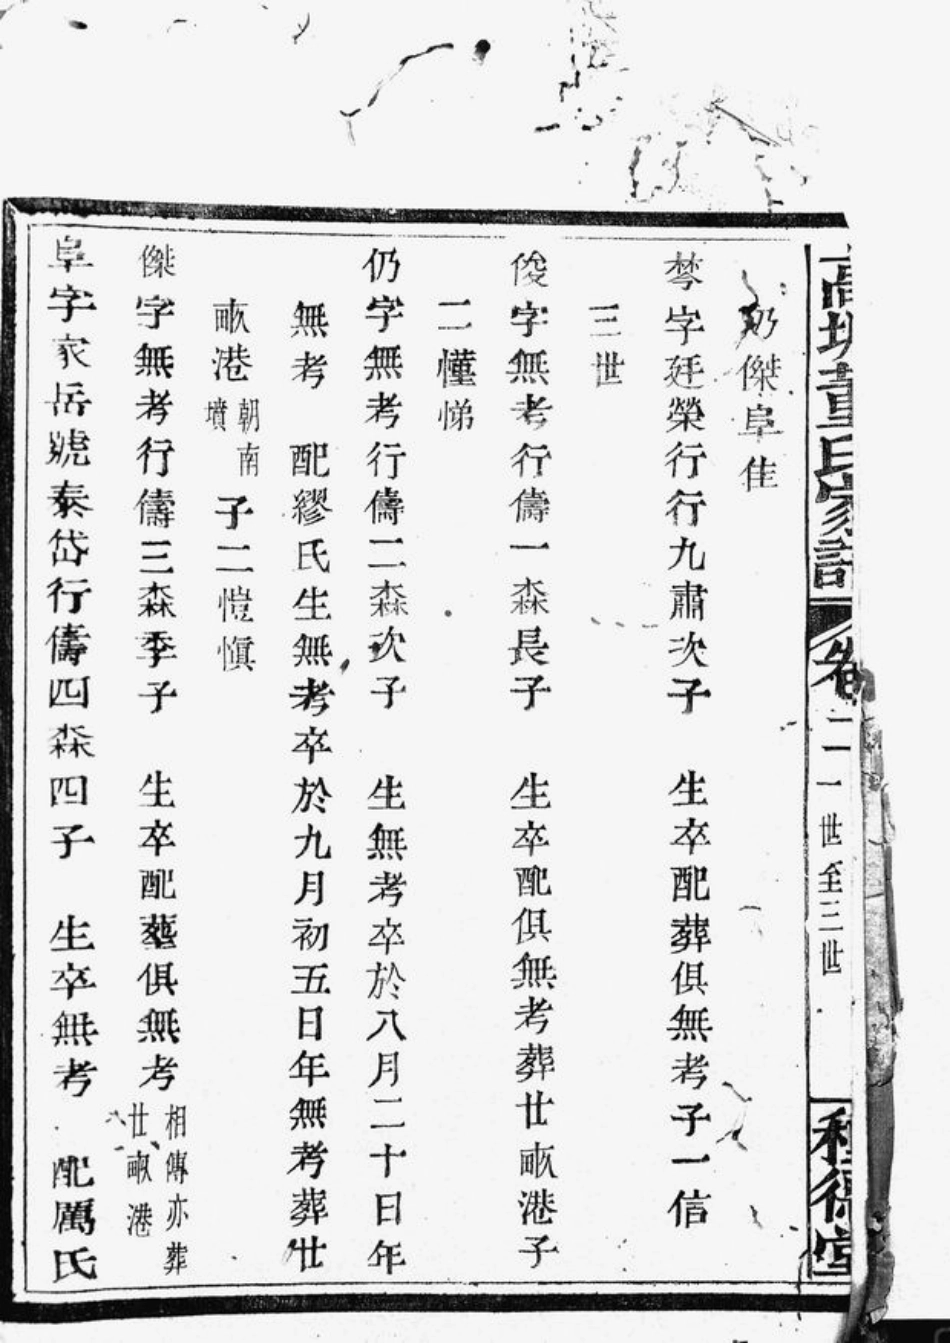 董氏家譜 卷二 一世至三世
仍傑阜佳
棽字廷榮行行九肅次子 生卒配葬俱無考子一信
三世
俊字無考行儔一森長子 生卒配俱無考葬廿畝港子
二慬悌
仍字無考行儔二森次子 生無考卒於八月二十日年
無考 配繆氏生無考卒於九月初五日年無考葬廿
畝港朝南墳 子二愷愼
傑字無考行儔三森季子 生卒配葬俱無考相傳亦葬廿畝港
阜字家岳號泰岱行儔四森四子 生卒無考 配厲氏